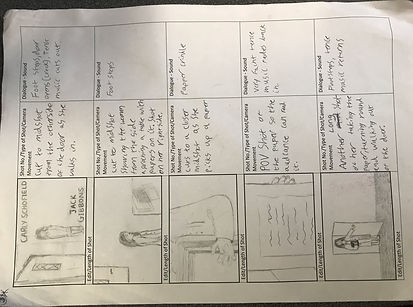 Edit/Length of Shot
CARLY SCHOFIELD
JACK
GIBBONS
Shot No./Type of Shot/Camera
Movement
cut to midshot
from the otherside
of the door as she
walks in.
Dialogue - Sound
Foot steps, door
music cuts out
Edit/Length of Shot
Shot No./Type of Shot/Camera
Movement
cut to midshot
showing the woman
from the side
papers on its shot
Dialogue - Sound
Foot steps
Edit/Length of Shot
Shot No./Type of Shot/Camera
Movement
cuts to a closer
midshot as she
picks up a paper
Dialogue - Sound
Paper crinkle
Edit/Length of Shot
Shot No./Type of Shot/Camera
Movement
POV shot of
the paper so the
audience can read
it.
Dialogue - Sound
very faint tense
music fades back
in
Edit/Length of Shot
Shot No./Type of Shot/Camera
Movement
Another long shot
of her taking the
paper, turning round
and walking out
of the door.
Dialogue - Sound
Footsteps, tense
music returns